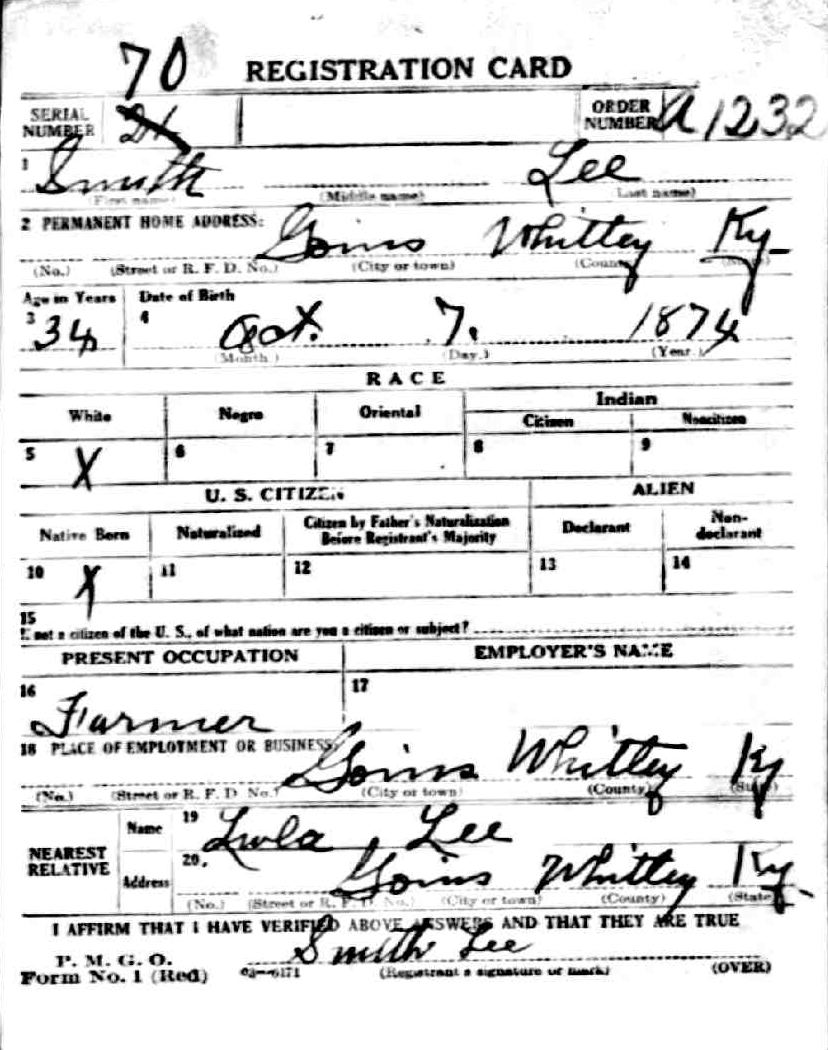 70 REGISTRATION CARD
SERIAL NUMBER ORDER NUMBER A 1232
1 Smith Lee
(First name) (Middle name) (Last name)
2 PERMANENT HOME ADDRESS: Goins Whitley Ky
(No.) (Street or R. F. D. No.) (City or town) (County) (State)
Age in Years Date of Birth
3 34 4 Oct. 7. 1874
(Month.) (Day.) (Year.)
RACE
White Negro Oriental Indian
Citizen Noncitizen
5 X 6 7 8 9
U. S. CITIZEN ALIEN
Native Born Naturalized Citizen by Father's Naturalization Before Registrant's Majority Declarant Non-declarant
10 X 11 12 13 14
15
If not a citizen of the U. S., of what nation are you a citizen or subject?
PRESENT OCCUPATION EMPLOYER'S NAME
16 Farmer 17
18 PLACE OF EMPLOYMENT OR BUSINESS: Goins Whitley Ky
(No.) (Street or R. F. D. No.) (City or town) (County) (State)
NEAREST RELATIVE Name 19 Lula Lee
Address 20. Goins Whitley Ky.
(No.) (Street or R. F. D. No.) (City or town) (County) (State)
I AFFIRM THAT I HAVE VERIFIED ABOVE ANSWERS AND THAT THEY ARE TRUE
Smith Lee
P. M. G. O.
Form No. 1 (Red) 03-6171 (Registrant's signature or mark) (OVER)